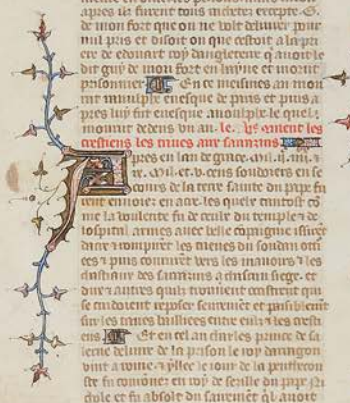 apres ils furent tous rachetez excepte .G.
de mont fort que on ne volt delivrer pour
nul pris et disoit on que cestoit a la pri
ere de edouart roy dangleterre qui avoit le
dit guy de mon fort en hayne et morut
prisonnier En ce meismes an mou
rut evesque de paris et puis a
pres luy fut evesque le quel
mourut dedens un an. le. les
crestiens les trives aus sarrazins
Apres en lan de grace .m. .ii. .iiii.
x. et. v. cens soudoiers en se
cours de la terre sainte du pape fu
rent envoiez en acre. les quelz tantost co
me la voulente fu de ceulx du temple et de
lospital armes avec belle compaignie issirent
dacre et rompirent les trieves du soudan
et puis coururent vers les manoirs et les
chastiaux des sarrazins a chascun siege. et
et autres quilz trouvoient occistrent qui
se cuidoient reposer seurement et paisiblement
sur les trives bailliees entre eulz et les cresti
ens Et en cel an charles prince de sa
lerne delivre de la prison le roy darragon
vint a romme. et illec le jour de la penthecou
ste fu couronne en roy de sezille du pape Ni
chole et fu absolt du sairement quil avoit